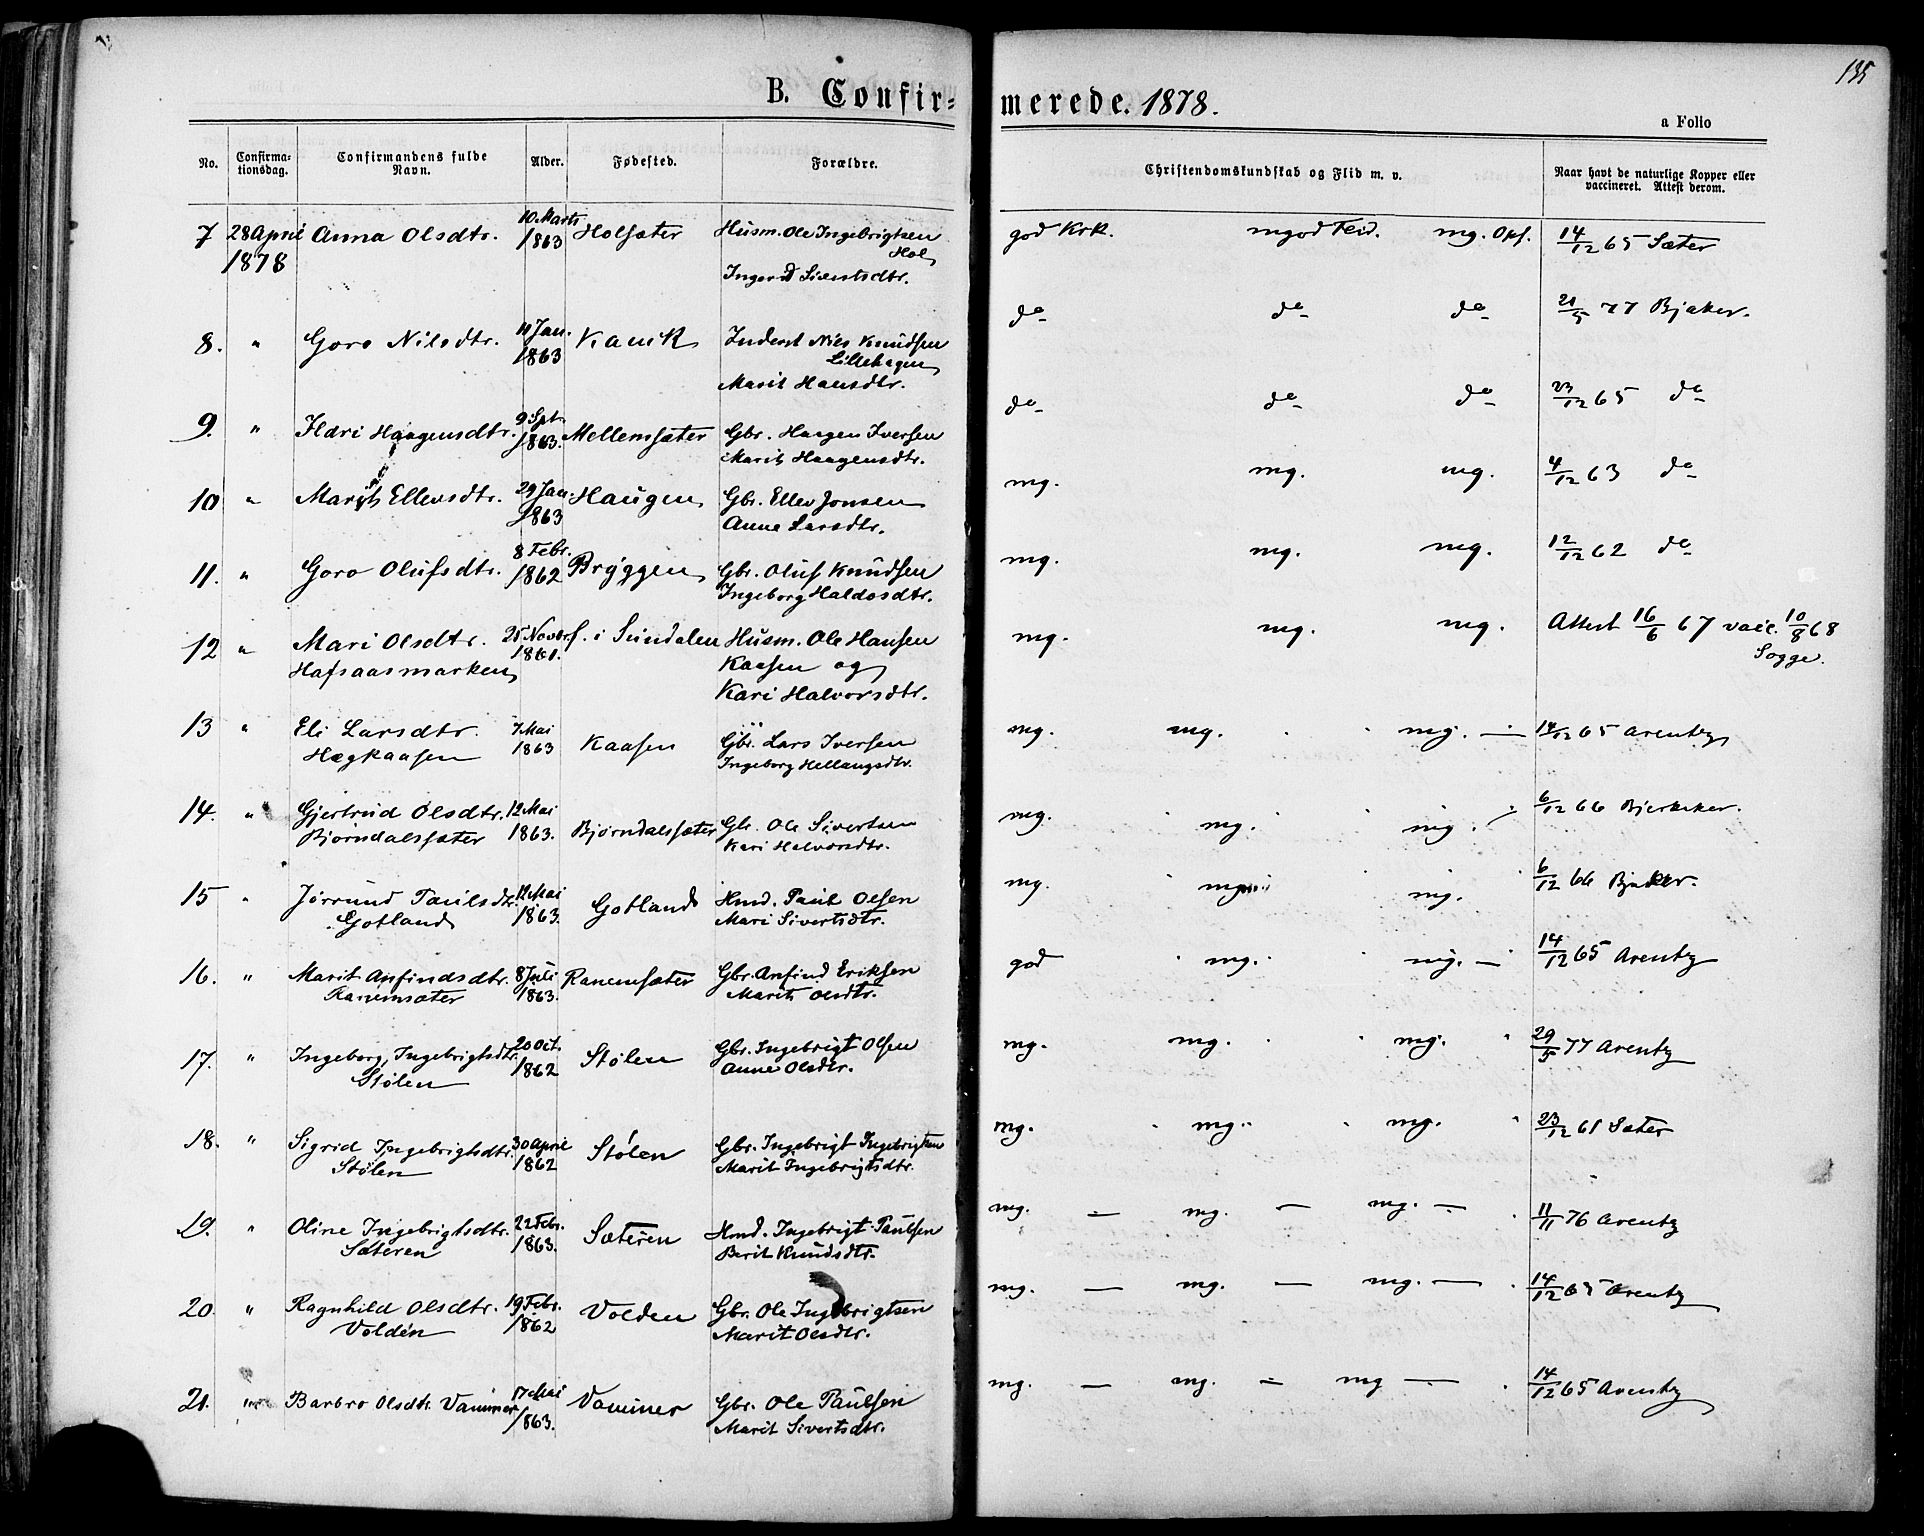 135
B. Confir-merede. 1878.
a Folio
No. Confirma-tionsdag. Confirmandens fulde Navn. Alder. Fødested. Forældre. Christendomskundskab og Flid m. v. Naar havt de naturlige Kopper eller vaccineret. Attest derom.
7 28 April 1878 Anna Olsdtr. 10 Marts 1863 Holsæter Husm. Ole Ingebrigtsen Hol god Krk. mgod Flid. mg. Opf. 14/12 65 Sæter
Ingerid Sivertsdtr.
8. " Goro Nilsdtr. 1863 Inderst Nils Knudsen do do do 77 Bjaker.
Lillehagen
Marit Hansdtr.
9. " Ildri Haagensdtr. 9 Spt. 1863. Mellemsæter Gbr. Haagen Iversen do do do 23/12 65 do
Marit Haagensdtr.
10 " Marit Ellevsdtr. 29 Jan. 1863 Haugen Gbr. Ellev Jonsen mg. mg. mg. 4/12 63 do
Anne Larsdtr.
11. " Goro Olufsdtr. 8 Febr. 1862 Bryggen Gbr. Oluf Knudsen mg. mg. mg. 12/12 62 do
Ingeborg Haldosdtr.
12 " Mari Olsdtr. 25 Novbr. 1861. f. i Sundalen Husm. Ole Hansen mg. mg. mg. Attest 16/6 67 vacc. 10/8 68
Hafsaasmarken Kaasen og Sogge.
Kari Halvorsdtr.
13 " Eli Larsdtr. 7 Mai 1863 Kaasen Gbr. Lars Iversen mg. mg. mg. — 14/12 65 Arentz
Hægkaasen Ingeborg Hellangsdtr.
14. " Gjertrud Olsdtr. 12 Mai 1863. Bjørndalssæter Gbr. Ole Sivertsen mg. mg. mg. 6/12 66 Bjerkeker.
Bjørndalssæter Kari Halvorsdtr.
15 " Jørrund Paulsdtr. 12 Mai 1863. Gotland Hmd. Paul Olsen mg. mg. mg. 6/12 66 Bjaker.
Gotland Mari Sivertsdtr.
16. " Marit Anfindsdtr. 8 Juli 1863. Ranemsæter Gbr. Anfind Eriksen god mg. mg. — 14/12 65 Arentz
Ranemsæter Marit Olsdtr.
17. " Ingeborg Ingebrigtsdtr. 20 Oct. 1862 Stølen Gbr. Ingebrigt Olsen mg. mg. mg. 29/5 77 Arentz
Stølen Anne Olsdtr.
18. " Sigrid Ingebrigtsdtr. 30 April 1862 Stølen Gbr. Ingebrigt Ingebrigtsen mg. mg. mg. 23/12 61 Sæter
Stølen Marit Ingebrigtsdtr.
19. " Oline Ingebrigtsdtr. 22 Febr. 1863. Sæteren Hmd. Ingebrigt Paulsen mg. — mg. — mg. — 11/11 76 Arentz
Sæteren Berit Knudsdtr.
20. " Ragnhild Olsdtr. 19 Febr. 1862 Volden Gbr. Ole Ingebrigtsen mg. — mg. — mg. — 14/12 65 Arentz
Volden Marit Olsdtr.
21. " Barbro Olsdtr. Vammer 17 Mai 1863. Vammer Gbr. Ole Paulsen mg. — mg. — mg — 14/12 65 Arentz
Marit Sivertsdtr.